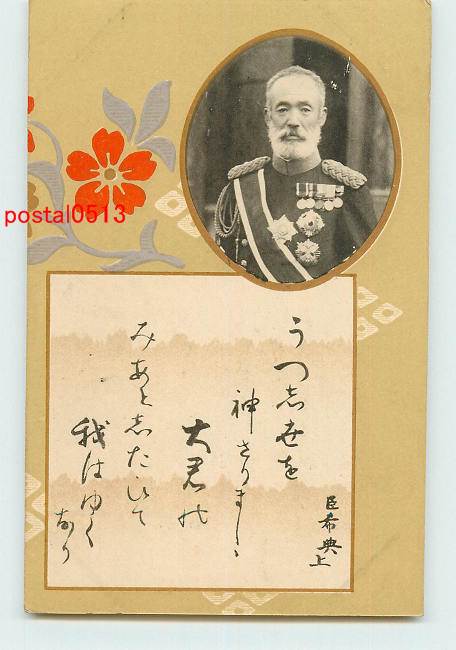 postal0513
臣希典上
うつ志世を
神さりましゝ
大君の
みあと志たひて
我はゆく
なり